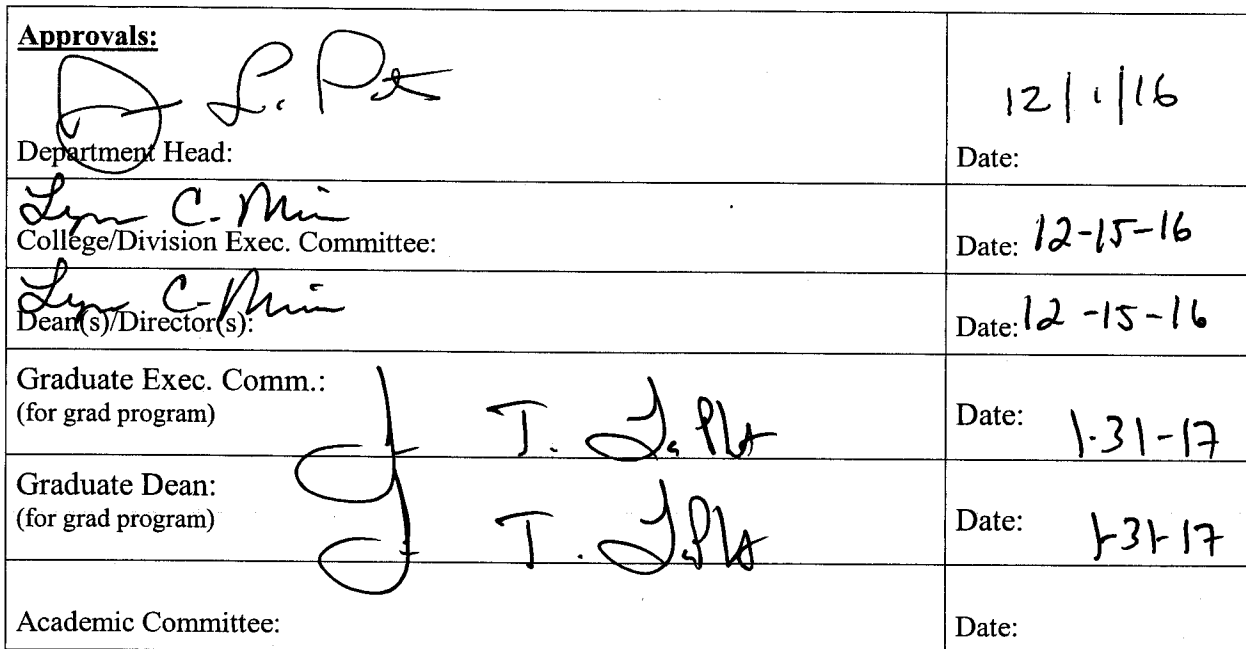 Approvals:
L. 12/1/16
Department Head: Date:
Lynn C.
College/Division Exec. Committee: Date: 12-15-16
Lynn C.
Dean(s)/Director(s): Date: 12-15-16
Graduate Exec. Comm.:
(for grad program) T. Date: 1-31-17
Graduate Dean:
(for grad program) T. Date: 1-31-17
Academic Committee: Date: